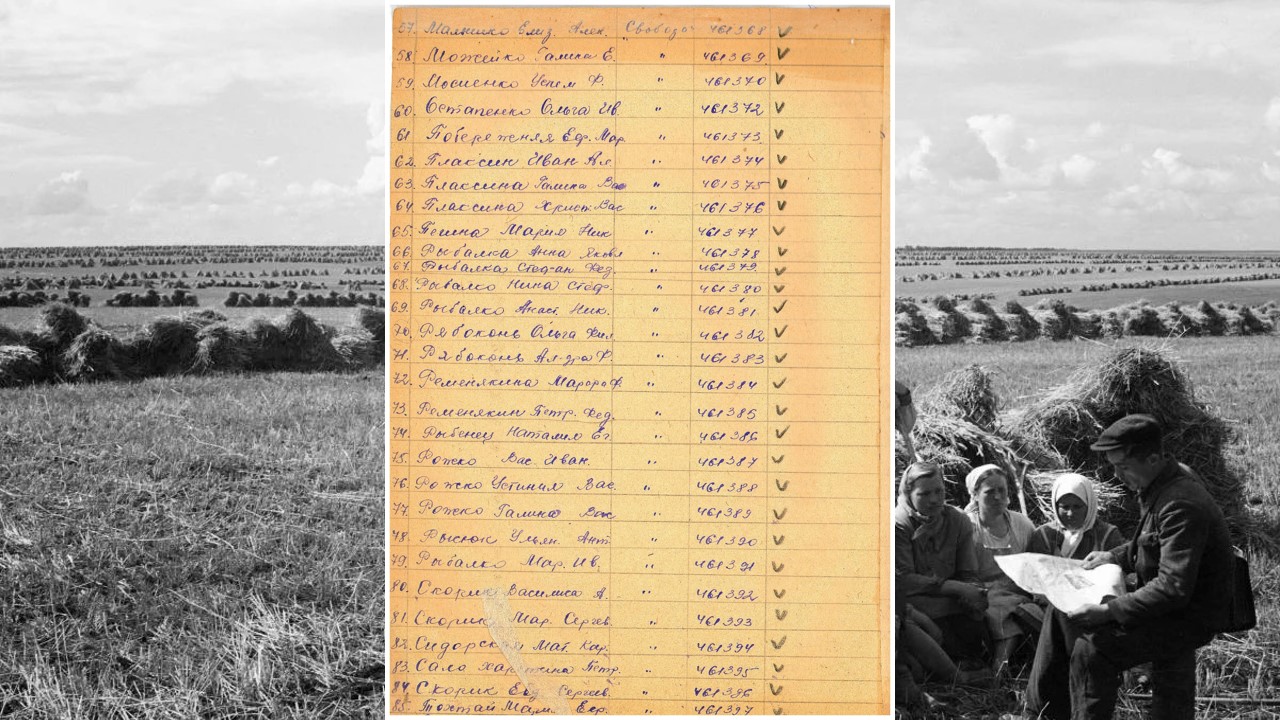 57. Малишко Елиз. Алек. Свобода 461368 ✓
58. Можейко Галина Е. " 461369 ✓
59. Мосиенко Устем Ф. " 461370 ✓
60. Остапенко Ольга Ив. " 461372 ✓
61 Побережная Еф. Мар. " 461373 ✓
62. Плаксин Иван Ал " 461374 ✓
63. Плаксина Галина Вас " 461375 ✓
64. Плаксина Христ. Вас " 461376 ✓
65. Пешна Мария Ник " 461377 ✓
66. Рыбалка Анна Яковл " 461378 ✓
67. Рыбалка Степан Фед. " 461379 ✓
68. Рыбалко Нина Стеф. " 461380 ✓
69. Рыбалко Анаст. Ник. " 461381 ✓
70. Рябоконь Ольга Фил " 461382 ✓
71. Рябоконь Ал-дра Ф. " 461383 ✓
72. Ременякина Ф. " 461384 ✓
73. Ременякин Петр. Фед. " 461385 ✓
74. Рыбенец Наталия Ег. " 461386 ✓
75. Рожко Вас. Иван. " 461387 ✓
76. Рожко Устиния Вас. " 461388 ✓
77. Рожко Галина Вас " 461389 ✓
78. Рысюк Ульян. Ант " 461390 ✓
79. Рыбалко Мар. Ив. " 461391 ✓
80. Скорик Василиса А. " 461392 ✓
81. Скорик Мар. Сергев. " 461393 ✓
82. Сидорская Мат. Кар. " 461394 ✓
83. Сало Харитина Петр. " 461395 ✓
84. Скорик Евд Сергеев. " 461396 ✓
85. Мари Евр. " 461397 ✓